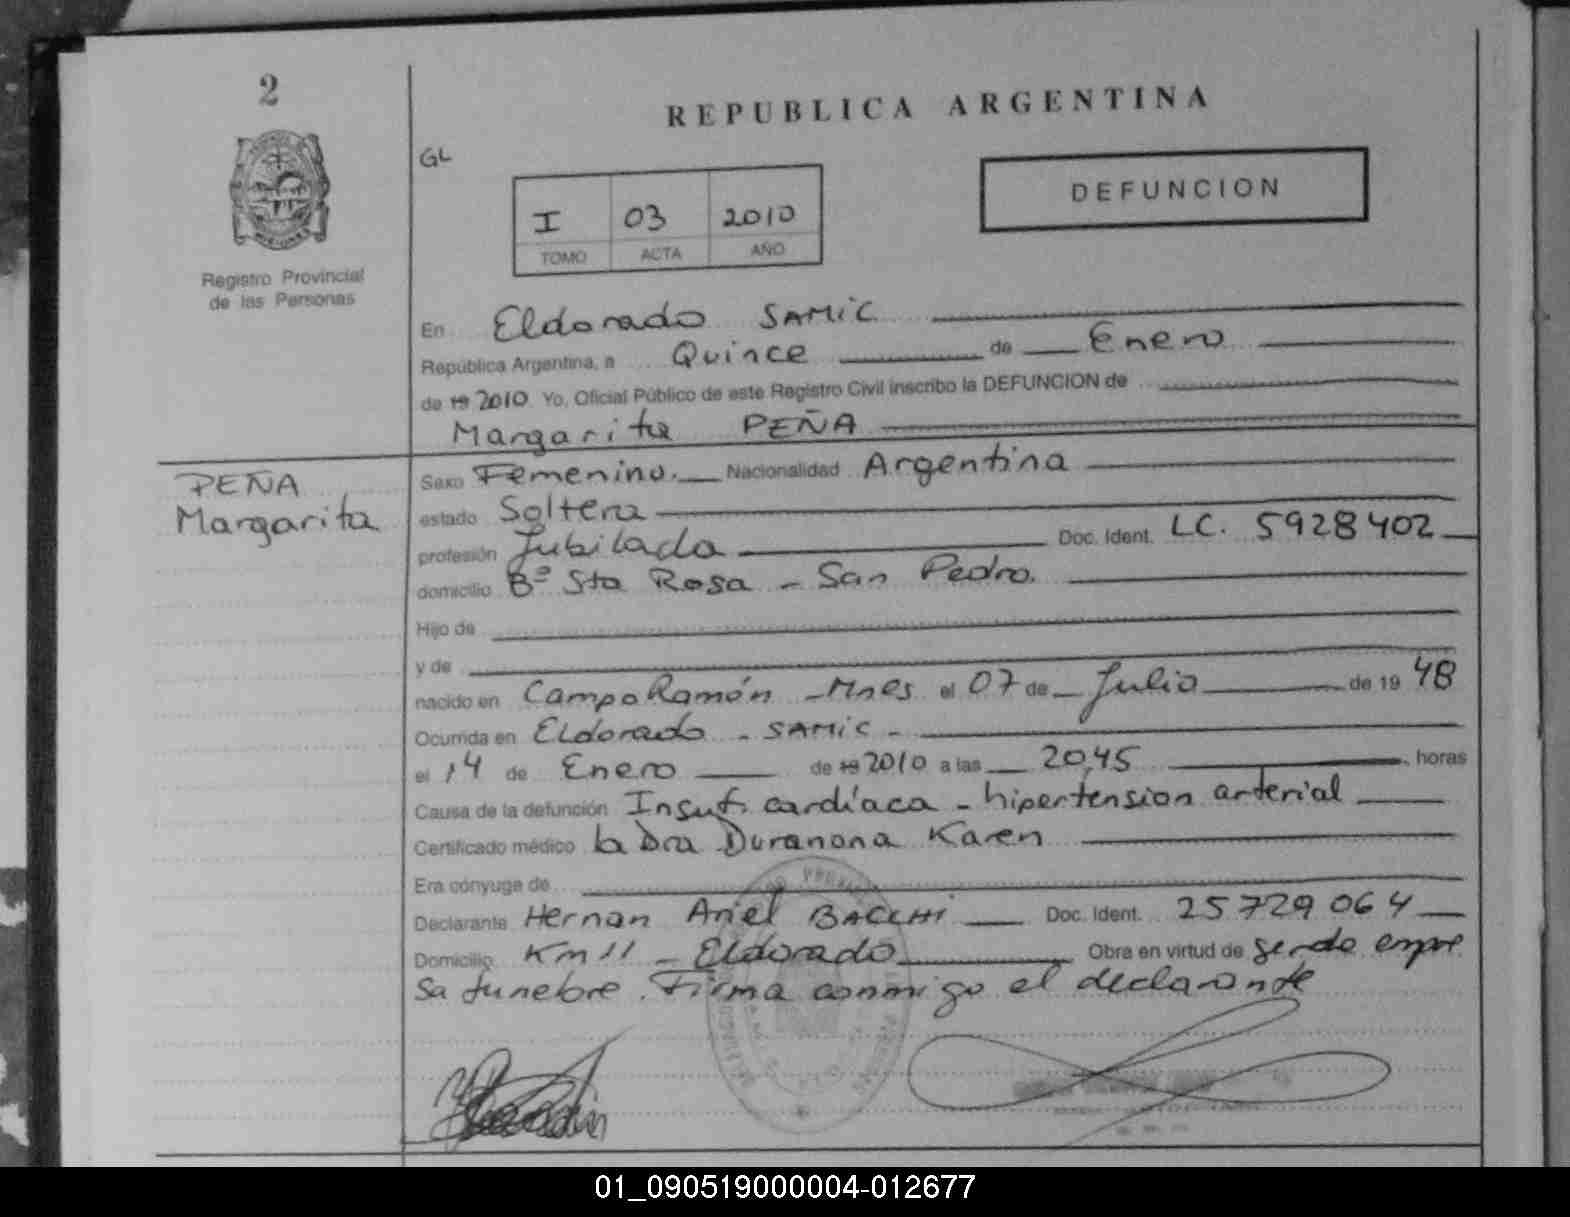 2
REPUBLICA ARGENTINA
GL
DEFUNCION
I 03 2010
TOMO ACTA AÑO
Registro Provincial
de las Personas
En Eldorado SAMIC
República Argentina, a Quince de Enero
de 19 2010 Yo, Oficial Público de este Registro Civil inscribo la DEFUNCION de
Margarita PEÑA
PEÑA
Margarita
Sexo Femenino. Nacionalidad Argentina
estado Soltera
profesión Jubilada Doc. Ident. LC. 5928402
domicilio Bº Sta Rosa - San Pedro.
Hijo de
y de
nacido en Campo Ramón - Mnes el 07 de Julio de 19 48
Ocurrida en Eldorado - SAMIC -
el 14 de Enero de 19 2010 a las 20,45 horas
Causa de la defunción Insuf. cardíaca - hipertension arterial
Certificado médico la Dra Duranona Karen
Era cónyuge de
Declarante Hernan Ariel BACCHI Doc. Ident. 25729064
Domicilio Km 11 - Eldorado Obra en virtud de ser de empre
sa funebre. Firma conmigo el declarante
01_090519000004-012677